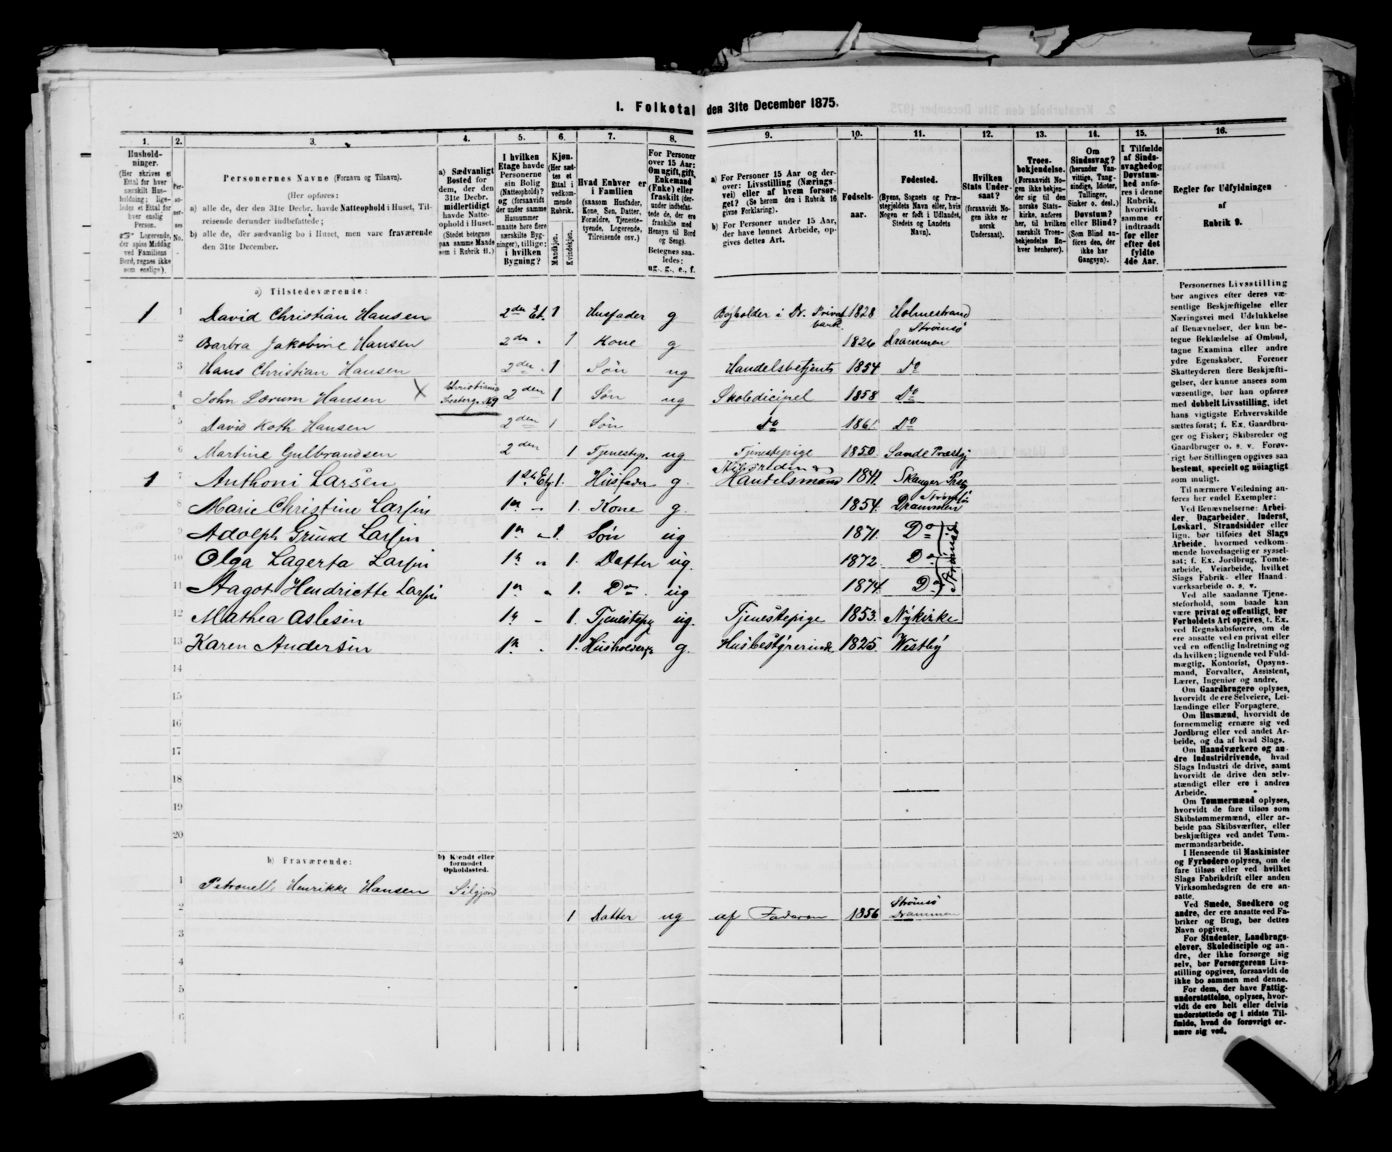 I. Folketal den 31te December 1875.
1.
2.
3.
4.
5.
6.
7.
8.
9.
10.
11.
12.
13.
14.
15.
16.
Hushold-
ninger.
(Her skrives et
Ettal for hver
særskilt Hus-
holdning; lige-
ledes et Ettal
for hver enslig
Person.
Logerende,
der spise Middag
ved Familiens
Bord, regnes ikke
som enslige).
Per-
so-
ner-
nes
No.
Personernes Navne (Fornavn og Tilnavn).
(Her opføres:
a) alle de, der den 31te Decbr. havde Natteophold i Huset, Til-
reisende derunder indbefattede;
b) alle de, der sædvanlig bo i Huset, men vare fraværende
den 31te December.
a) Sædvanligt
Bosted for
dem, der den
31te Decbr.
midlertidigt
havde Natte-
ophold i Huset.
(Stedet betegnes
paa samme Maade
som i Rubrik 11.)
I hvilken
Etage havde
Personerne
sin Bolig
(Natteophold)?
og (forsaavidt
der under samme
Husnummer
maatte høre flere
særskilte Byg-
ninger), tillige:
i hvilken
Bygning?
Kjøn.
(Her sæt-
tes et
Ettal i
vedkom-
mende
Rubrik.
Mandkjøn.
Kvindekjøn.
Hvad Enhver er
i Familien
(saasom Husfader,
Kone, Søn, Datter,
Forældre, Tjeneste-
tyende, Logerende,
Tilreisende osv.)
For Personer
over 15 Aar:
Om ugift, gift,
Enkemand
(Enke) eller
fraskilt (der-
under indbefat-
tede de, der ere
fraskilte med
Hensyn til Bord
og Seng).
Betegnes saa-
ledes:
ug., g., e., f.
a) For Personer 15 Aar og der-
over: Livsstilling (Nærings-
vei) eller af hvem forsør-
get? (Se herom den i Rubrik 16
givne Forklaring).
b) For Personer under 15 Aar,
der have lønnet Arbeide, op-
gives dettes Art.
Fødsels-
aar.
Fødested.
(Byens, Sognets og Præ-
stegjeldets Navn eller, hvis
Nogen er født i Udlandet,
Stedets og Landets
Navn).
Hvilken
Stats Under-
saat?
(forsaavidt No-
gen ikke er
norsk
Undersaat).
Troes-
bekjendelse.
(Forsaavidt No-
gen ikke bekjen-
der sig til den
norske Stats-
kirke, anføres
her, til hvilken
særskilt Troes-
bekjendelse En-
hver henhører).
Om
Sindssvag?
(herunder Van-
vittige, Tung-
sindige, Idioter,
Tullinger,
Sinker o. desl.)
Døvstum?
eller Blind?
(Som Blind an-
føres den, der
ikke har
Gangsyn).
I Tilfælde
af Sinds-
svaghed og
Døvstum-
hed anfø-
res i denne
Rubrik,
hvorvidt
samme er
indtraadt
før eller
efter det
fyldte
4de Aar.
Regler for Udfyldningen
af
Rubrik 9.
a) Tilstedeværende:
1 1 David Christian Hansen 2den Et. 1 Husfader g Bogholder i Dr. Privat bank 1828 Holmestrand
2 Barbra Jakobine Hansen 2den " 1 Kone g 1826 Strømsø Drammen
3 Hans Christian Hansen 2den " 1 Søn ug Handelsbetjent 1854 Do
4 John Lærum Hansen X Christiania 2den 1 Søn ug Skoledicipel 1858 Do
5 David Koth Hansen 2den 1 Søn Do 1861 Do
6 Martine Gulbrandsen 2den 1 Tjenestep. ug Tjenestepige 1850 Sande Præstgj
1 7 Anthoni Larsen 1ste Etg 1. Husfader g. Handelsmand 1841 Skauger Præ
8 Marie Christine Larsen 1n " 1. Kone g. 1854. Strømsø Drammen
9 Adolph Grüud Larsen 1n " 1 Søn ug 1871. Do
10 Olga Lagerta Larsen 1n " 1. Datter ug. 1872. Do
11 Aagot Hendriette Larsen 1n " 1. Do ug 1874. Do
Strømsø
12 Mathea Aslesen 1n " 1. Tjenestepg ug. Tjenestepige 1853. Nykirke
13 Karen Andersen 1n " 1. g. Husbestyrerinde 1825 Westby
14
15
16
17
18
19
20
b) Fraværende:
b) Kjendt eller
formodet
Opholdssted.
1 Petronelle Henrikke Hansen
2 1 Datter ug af Faderen 1856 Strømsø Drammen
3
4
5
6
Personernes Livsstilling
bør angives efter deres væ-
sentlige Beskjæftigelse eller
Næringsvei med Udelukkelse
af Benævnelser, der kun be-
tegne Beklædelse af Ombud,
tagne Examina eller andre
ydre Egenskaber. Forener
Skatteyderen flere Beskjæfti-
gelser, der kunne ansees som
væsentlige, bør han opføres
med dobbelt Livsstilling, idet
hans vigtigste Erhvervskilde
sættes først; f. Ex. Gaardbru-
ger og Fisker; Skibsreder og
Gaardbruger o. s. v. Forøv-
rigt bør Stillingen opgives saa
bestemt, specielt og nøiagtigt
som muligt.
Til nærmere Veiledning an-
føres her endel Exempler:
Ved Benævnelserne: Arbei-
der, Dagarbeider, Inderst,
Løskarl, Strandsidder eller
lign. bør tilføies det Slags
Arbeide, hvormed vedkom-
mende hovedsagelig er syssel-
sat; f. Ex. Jordbrug, Tomte-
arbeide, Veiarbeide, hvilket
Slags Fabrik- eller Haand-
værksarbeide o. s. v.
Ved alle saadanne Tjene-
steforhold, som baade kan
være privat og offentligt, bør
Forholdets Art opgives, f. Ex.
ved Regnskabsførere, om de
ere ansatte ved en privat eller
ved en offentlig Indretning og
da hvilken; lignende ved Fuld-
mægtig, Kontorist, Opsyns-
mand, Forvalter, Assistent,
Lærer, Ingeniør og andre.
Om Gaardbrugere oplyses,
hvorvidt de ere Selveiere, Lei-
lændinge eller Forpagtere.
Om Husmænd, hvorvidt de
fornemmelig ernære sig ved
Jordbrug eller ved andet Ar-
beide, og da af hvad Slags.
Om Haandværkere og an-
dre Industridrivende, hvad
Slags Industri de drive, samt
hvorvidt de drive den selv-
stændigt eller ere i andres
Arbeide.
Om Tømmermænd oplyses,
hvorvidt de fare tilsøs som
Skibstømmermænd, eller ar-
beide paa Skibsværfter, eller
beskjæftiges ved andet Tøm-
mermandsarbeide.
I Henseende til Maskinister
og Fyrbødere oplyses, om de
fare tilsøs eller ved hvilket
Slags Fabrikdrift eller anden
Virksomhedsgren de ere an-
satte.
Ved Smede, Snedkere og
andre, der ere ansatte ved Fa-
briker og Brug, bør dettes
Navn opgives.
For Studenter, Landbrugs-
elever, Skoledisciple og an-
dre, der ikke forsørge sig
selv, bør Forsørgerens Livs-
stilling opgives, forsaavidt de
ikke bo sammen med denne.
For dem, der have Fattig-
understøttelse, oplyses, hvor-
vidt de ere helt eller delvis
understøttede og i sidste Til-
fælde, hvad de forøvrigt er-
nære sig ved.